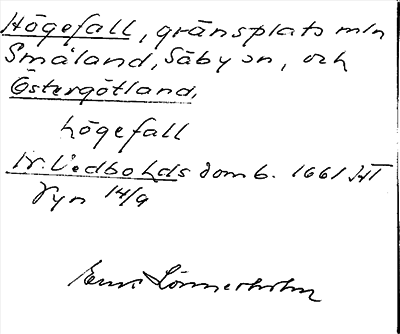 Högefall, gränsplats mln
Småland, Säby sn, och
Östergötland.
högefall
N. Vedbohds domb. 1661 HT
Syn 14/9
Lönnerholm